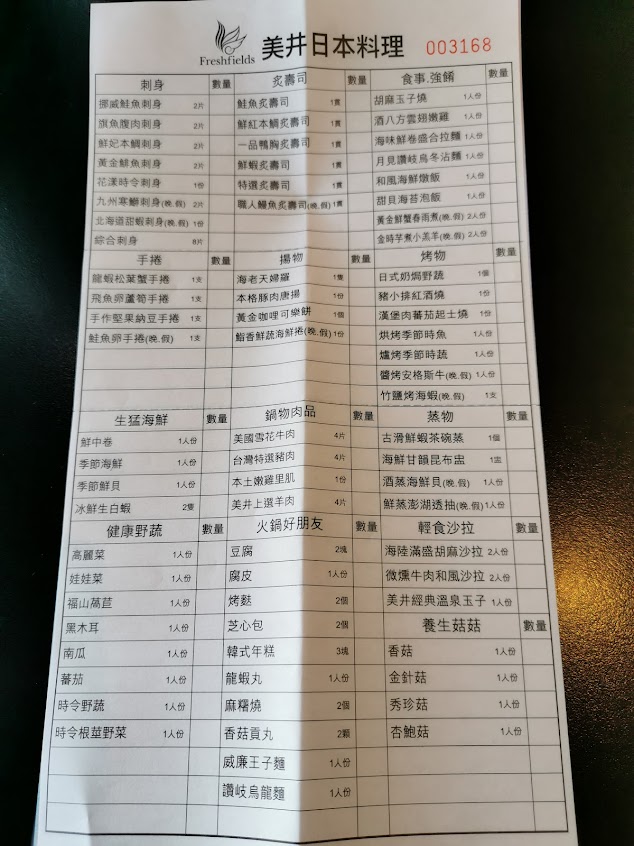 Freshfields 美井日本料理 003168
刺身 數量
挪威鮭魚刺身 2片
旗魚腹肉刺身 2片
鮮妃本鯛刺身 2片
黃金鯡魚刺身 2片
花漾時令刺身 1份
九州寒鰤刺身(晚.假) 2片
北海道甜蝦刺身(晚.假) 1份
綜合刺身 8片
炙壽司 數量
鮭魚炙壽司 1貫
鮮紅本鯛炙壽司 1貫
一品鴨胸炙壽司 1貫
鮮蝦炙壽司 1貫
特選炙壽司 1貫
職人鰻魚炙壽司(晚.假) 1貫
食事.強餚 數量
胡麻玉子燒 1人份
酒八方雲翅嫩雞 1人份
海味鮮卷盛合拉麵 1人份
月見讚岐烏冬沾麵 1人份
和風海鮮燉飯 1人份
甜貝海苔泡飯 1人份
黃金鮮蟹春雨煮(晚.假) 2人份
金時芋煮小羔羊(晚.假) 2人份
手捲 數量
龍蝦松葉蟹手捲 1支
飛魚卵蘆筍手捲 1支
手作堅果納豆手捲 1支
鮭魚卵手捲(晚.假) 1支
揚物 數量
海老天婦羅 1隻
本格豚肉唐揚 1份
黃金咖哩可樂餅 1個
鮨香鮮蔬海鮮捲(晚.假) 1份
烤物 數量
日式奶焗野蔬 1個
豬小排紅酒燒 1份
漢堡肉蕃茄起士燒 1份
烘烤季節時魚 1人份
爐烤季節時蔬 1人份
醬烤安格斯牛(晚.假) 1人份
竹鹽烤海蝦(晚.假) 1支
生猛海鮮 數量
鮮中卷 1人份
季節海鮮 1人份
季節鮮貝 1人份
冰鮮生白蝦 2隻
鍋物肉品 數量
美國雪花牛肉 4片
台灣特選豬肉 4片
本土嫩雞里肌 1份
美井上選羊肉 4片
蒸物 數量
古滑鮮蝦茶碗蒸 1個
海鮮甘韻昆布盅 1盅
酒蒸海鮮貝(晚.假) 1人份
鮮蒸澎湖透抽(晚.假) 1人份
健康野蔬 數量
高麗菜 1人份
娃娃菜 1人份
福山萵苣 1人份
黑木耳 1人份
南瓜 1人份
蕃茄 1人份
時令野蔬 1人份
時令根莖野菜 1人份
火鍋好朋友 數量
豆腐 2塊
腐皮 1人份
烤麩 2個
芝心包 2個
韓式年糕 3塊
龍蝦丸 1人份
麻糬燒 2個
香菇貢丸 2顆
威廉王子麵 1人份
讚岐烏龍麵 1人份
輕食沙拉 數量
海陸滿盛胡麻沙拉 2人份
微燻牛肉和風沙拉 2人份
美井經典溫泉玉子 1人份
養生菇菇 數量
香菇 1人份
金針菇 1人份
秀珍菇 1人份
杏鮑菇 1人份